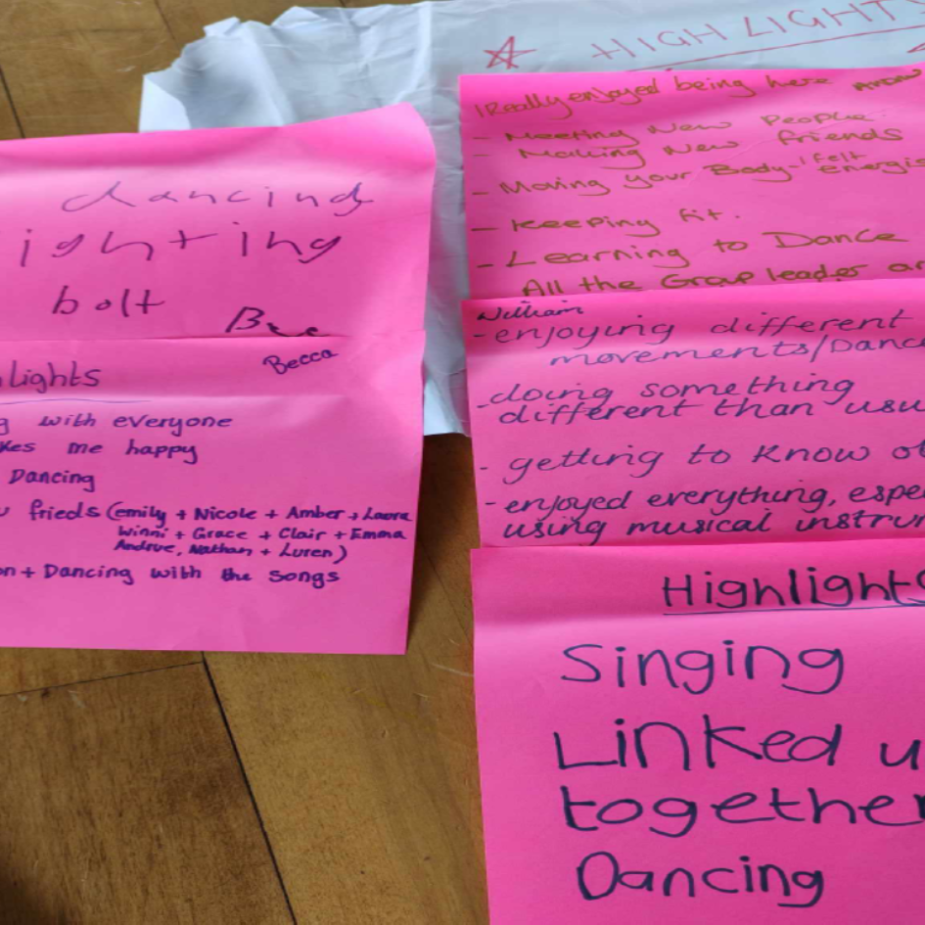 HIGH LIGHTS
dancing
ighting
bolt
Becca
lights
g with everyone
kes me happy
Dancing
frieds (emily + Nicole + Amber + Laura
Winni + Grace + Clair + Emma
Andrue, Nathan + Luren)
on + Dancing with the songs
I Really enjoyed being here
- Meeting New People
- Making New friends
- Moving your Body - I felt energis
- Keeping fit.
- Learning to Dance
All the Group leader ar
William
- enjoying different
movements/Danc
- doing something
different than usu
- getting to know ot
- enjoyed everything, espe
using musical instrum
Highlights
Singing
Linked u
together
Dancing